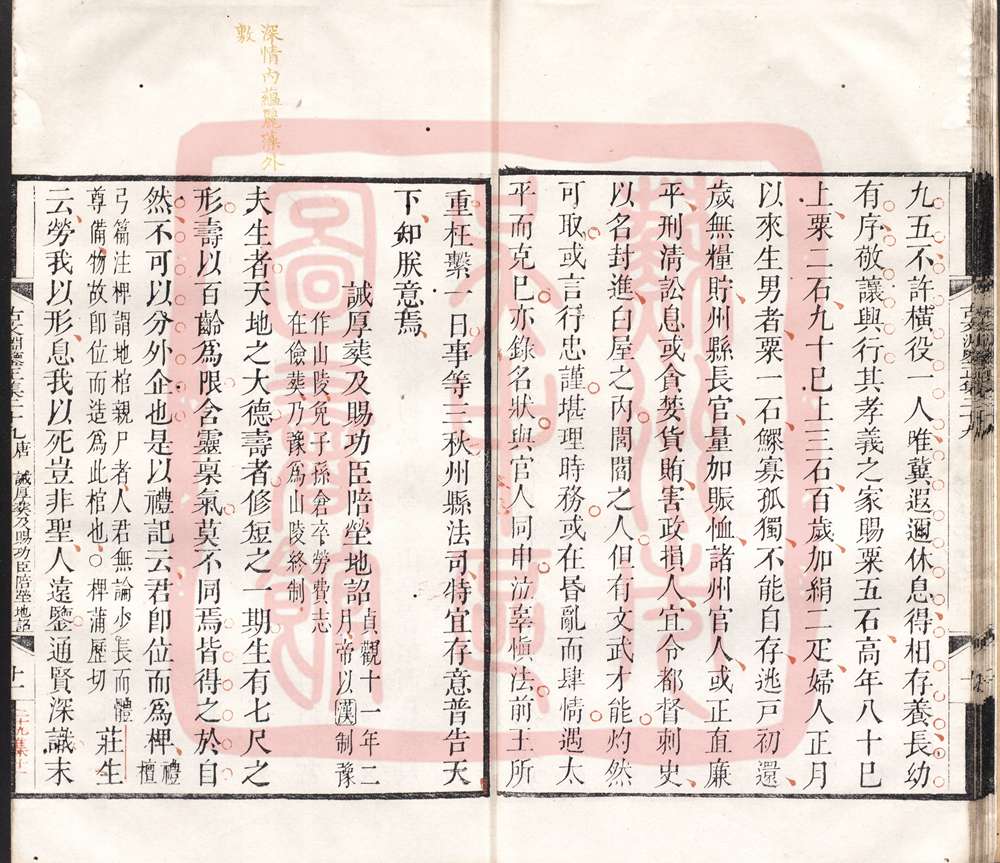 九五不許橫役一人唯冀遐邇休息得相存養長幼
有序敬讓興行其孝義之家賜粟五石高年八十已
上粟二石九十已上三石百歲加絹二疋婦人正月
以來生男者粟一石鰥寡孤獨不能自存逃戸初還
歲無糧貯州縣長官量加賑恤諸州官人或正直廉
平刑清訟息或貪婪貨賄害政損人宜令都督刺史
以名封進白屋之內閭閻之人但有文武才能灼然
可取或言行忠謹堪理時務或在昏亂而肆情遇太
平而克已亦錄名狀與官人同申泣辜愼法前王所
重枉繫一日事等三秋州縣法司特宜存意普告天
下知朕意焉
誡厚葬及賜功臣陪塋地詔
貞觀十一年二
月帝以漢制豫
作山陵免子孫倉卒勞費志
在儉葬乃豫爲山陵終制
夫生者天地之大德壽者修短之一期生有七尺之
形壽以百齡爲限含靈稟氣莫不同焉皆得之於自
然不可以分外企也是以禮記云君卽位而爲椑
禮
檀
弓篇注椑謂地棺親尸者人君無論少長而體
尊備物故卽位而造爲此棺也○椑蒲歷切
莊生
云勞我以形息我以死豈非聖人遠鑒通賢深識末
古文淵鑒
二十九
唐
誡厚葬及賜功臣陪塋地詔
十一
深情內蘊麗藻外
敷